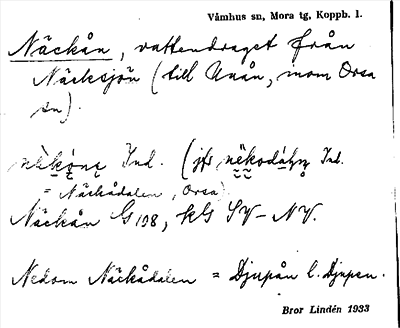 Våmhus sn, Mora tg, Koppb. l.
Näckån, vattendraget från
Näcksjön (till Unån, inom Orsa
sn).
Ind. (jfr Ind.
= Näckådalen, Orsa)
Näckån G 108, kG SV–NV.
Nedom Näckådalen = Djupån l. Djupen.
Bror Lindén 1933